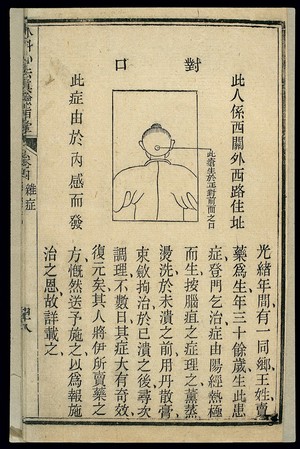 對口
此人係西關外西路住址
此瘡生於正對前面之口
此症由於內感而發
光緒年間有一同鄉王姓賣
藥爲生年三十餘歲生此患
症登門乞治症由陽經熱極
而生按腦疽之症理之薰蒸
燙洗於未潰之前用丹散膏
束斂拘治於已潰之後尋次
調理不數日其症大有奇效
復元矣其人將伊所賣藥之
方慨然送予施之以爲報施
治之恩故詳載之
外科心法真驗指掌
卷四 雜症